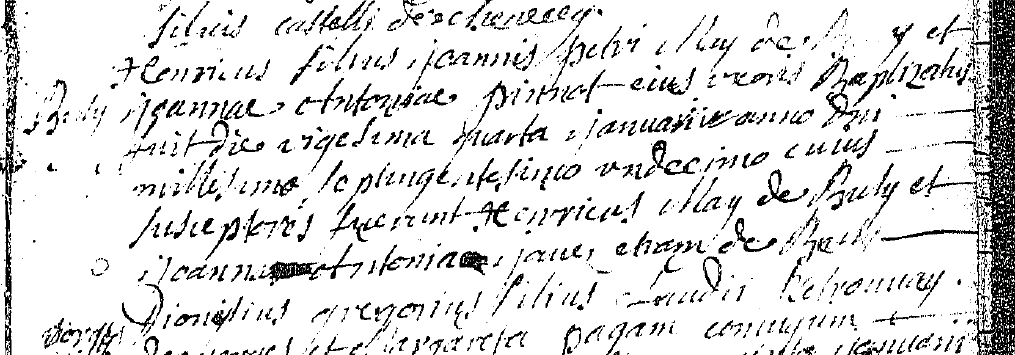 filius castelli de
Henricus filius Joannis petri May de Busy et
Busy Joannae Antoniae pinnot eius uxoris Baptizatus
fuit die vigesima quarta Januarii anno Dni
millesimo septingentesimo undecimo cuius
susceptores fuerunt Henricus May de Busy et
Joanna Antonia etiam de Busy
Dionisius gregorius filius Claudii
et Margareta pagam coniugum